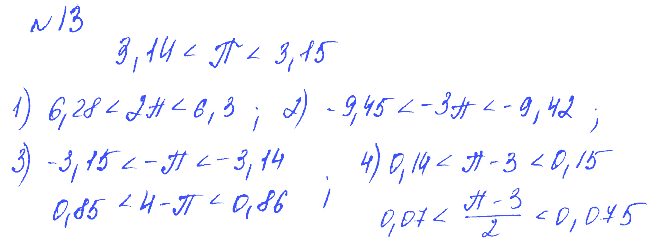 №13
3,14 < π < 3,15
1) 6,28 < 2π < 6,3 ; 2) -9,45 < -3π < -9,42 ;
3) -3,15 < -π < -3,14
0,85 < 4-π < 0,86 ;
4) 0,14 < π-3 < 0,15
0,07 < (π-3)/2 < 0,075